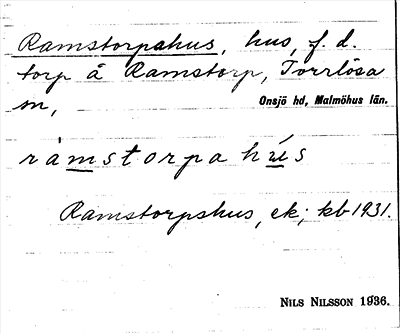 Ramstorpshus, hus, f. d.
torp å Ramstorp, Torrlösa
sn, Onsjö hd, Malmöhus län.
ràmstorpahús
Ramstorpshus, ek; kb 1931.
NILS NILSSON 1936.